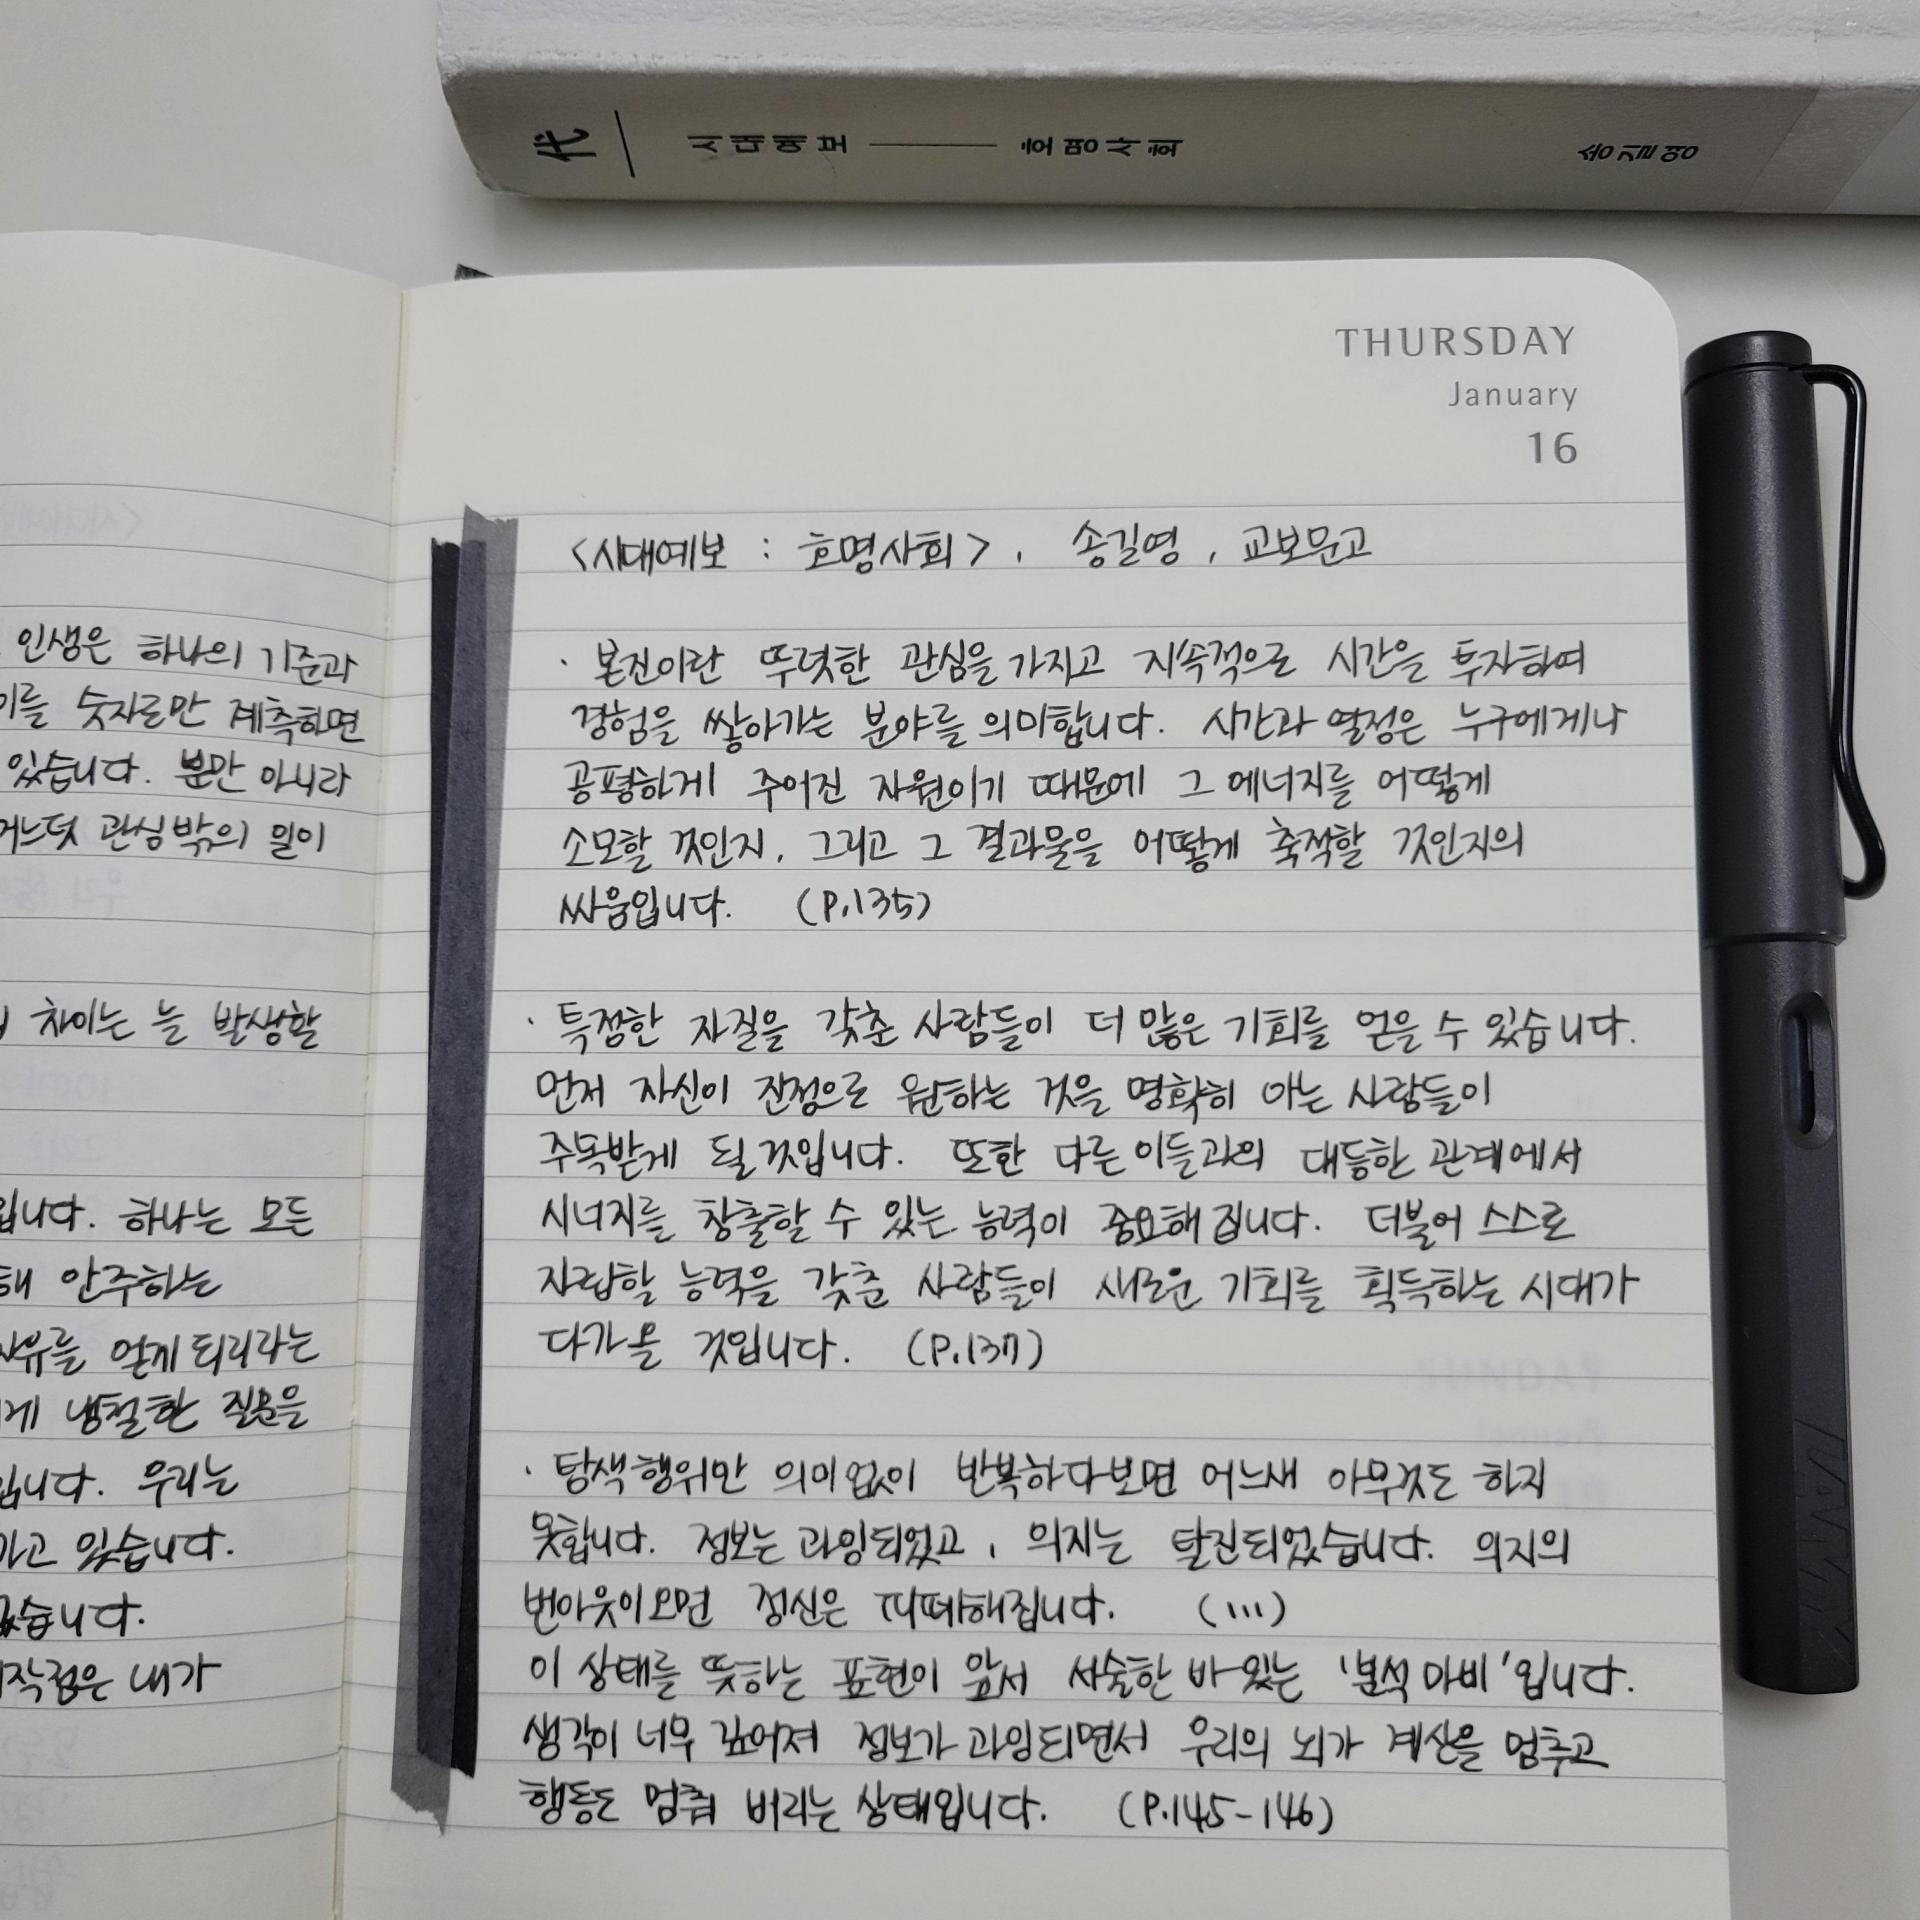 代 시대예보 호명사회 송길영
THURSDAY
January
16
인생은 하나의 기준과
이를 숫자로만 계측하면
있습니다. 뿐만 아니라
관심 밖의 일이
차이는 늘 발생할
입니다. 하나는 모든
안주하는
자유를 얻게 되리라는
냉철한 질문을
입니다. 우리는
있습니다.
내가
<시대예보 : 호명사회>, 송길영, 교보문고
· 본진이란 뚜렷한 관심을 가지고 지속적으로 시간을 투자하여
경험을 쌓아가는 분야를 의미합니다. 시간과 열정은 누구에게나
공평하게 주어진 자원이기 때문에 그 에너지를 어떻게
소모할 것인지, 그리고 그 결과물을 어떻게 축적할 것인지의
싸움입니다. (P.135)
· 특정한 자질을 갖춘 사람들이 더 많은 기회를 얻을 수 있습니다.
먼저 자신이 진정으로 원하는 것을 명확히 아는 사람들이
주목받게 될 것입니다. 또한 다른 이들과의 대등한 관계에서
시너지를 창출할 수 있는 능력이 중요해집니다. 더불어 스스로
자립할 능력을 갖춘 사람들이 새로운 기회를 획득하는 시대가
다가올 것입니다. (P.137)
· 탐색 행위만 의미 없이 반복하다 보면 어느새 아무것도 하지
못합니다. 정보는 과잉되었고, 의지는 탈진되었습니다. 의지의
번아웃이 오면 정신은 피폐해집니다. (...)
이 상태를 뜻하는 표현이 앞서 서술한 바 있는 '분석 마비'입니다.
생각이 너무 깊어져 정보가 과잉되면서 우리의 뇌가 계산을 멈추고
행동도 멈춰 버리는 상태입니다. (P.145-146)
LAMY